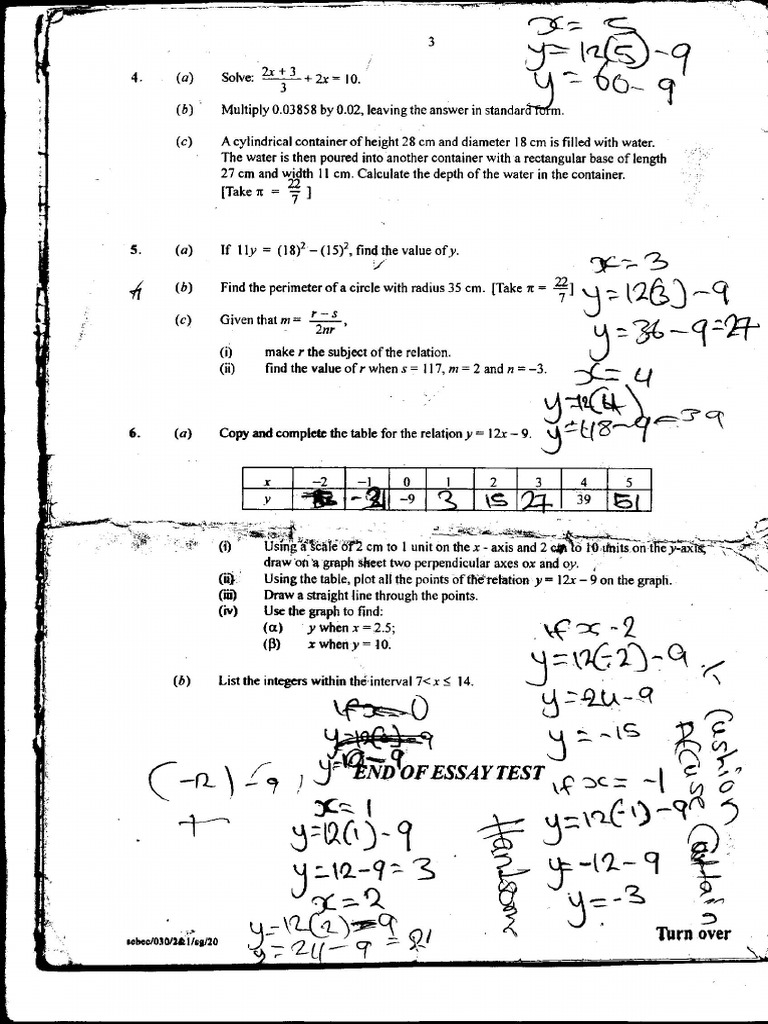 3
x = 5
y = 12(5) - 9
y = 60 - 9
4. (a) Solve: 2x + 3 / 3 + 2x = 10.
(b) Multiply 0.03858 by 0.02, leaving the answer in standard form.
(c) A cylindrical container of height 28 cm and diameter 18 cm is filled with water.
The water is then poured into another container with a rectangular base of length
27 cm and width 11 cm. Calculate the depth of the water in the container.
[Take π = 22/7 ]
5. (a) If 11y = (18)² – (15)², find the value of y.
(b) Find the perimeter of a circle with radius 35 cm. [Take π = 22/7]
(c) Given that m = r – s / 2nr,
(i) make r the subject of the relation.
(ii) find the value of r when s = 117, m = 2 and n = –3.
x = 3
y = 12(3) - 9
y = 36 - 9 = 27
x = 4
y = 12(4)
y = 48 - 9 = 39
6. (a) Copy and complete the table for the relation y = 12x – 9.
x –2 –1 0 1 2 3 4 5
y –9 3 15 27 39 51
(i) Using a scale of 2 cm to 1 unit on the x - axis and 2 cm to 10 units on the y-axis,
draw on a graph sheet two perpendicular axes ox and oy.
(ii) Using the table, plot all the points of the relation y = 12x – 9 on the graph.
(iii) Draw a straight line through the points.
(iv) Use the graph to find:
(α) y when x = 2.5;
(β) x when y = 10.
(b) List the integers within the interval 7< x ≤ 14.
if x - 2
y = 12(-2) - 9
y = 24 - 9
y = -15
if x = -1
y = 12(-1) - 9
y = -12 - 9
y = -3
if x = 0
y = 12(0) - 9
y = 12 - 9
END OF ESSAY TEST
(-12) - 9
+
x = 1
y = 12(1) - 9
y = 12 - 9 = 3
x = 2
y = 12(2) - 9
y = 24 - 9 =
Handsome
Cushion
sebec/030/2&1/sg/20
Turn over